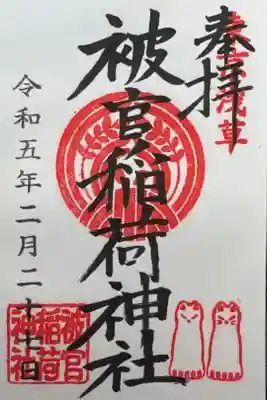 奉拝
浅草
被官稲荷神社
令和五年二月二十七日
被官
稲荷
神社